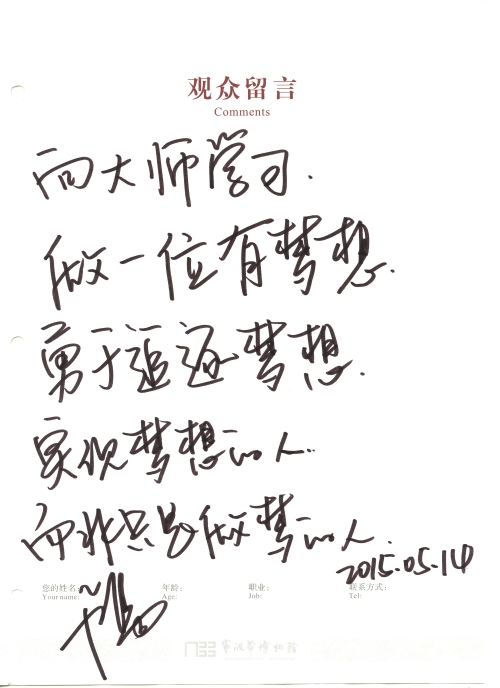 观众留言
Comments
向大师学习.
做一位有梦想.
勇于追逐梦想.
实现梦想的人..
而非只是做梦的人.
2015.05.14
您的姓名: 年龄: 职业: 联系方式:
Your name: Age: Job: Tel:
宁波帮博物馆